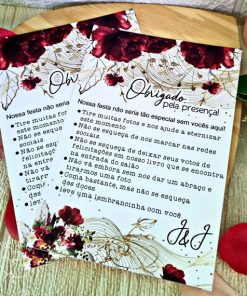 Ob
Nossa festa não seria
Tire muitas fotos
este momento
Não se esqueça
Não se
Não se esque
felicitaçõ
na entr
Não vá
tirarr
Coma
dos
leve
Obrigado
pela presença!
Nossa festa não seria tão especial sem vocês aqui!
Tire muitas fotos e nos ajude a eternizar
este momento
Não se esqueça de nos marcar nas redes
sociais
Não se esqueça de deixar seus votos de
felicitações em nosso livro que se encontra
na entrada do salão
Não vá embora sem nos dar um abraço e
tirarmos uma foto
Coma bastante, mas não se esqueça
dos doces
leve uma lembrancinha com você
J&J